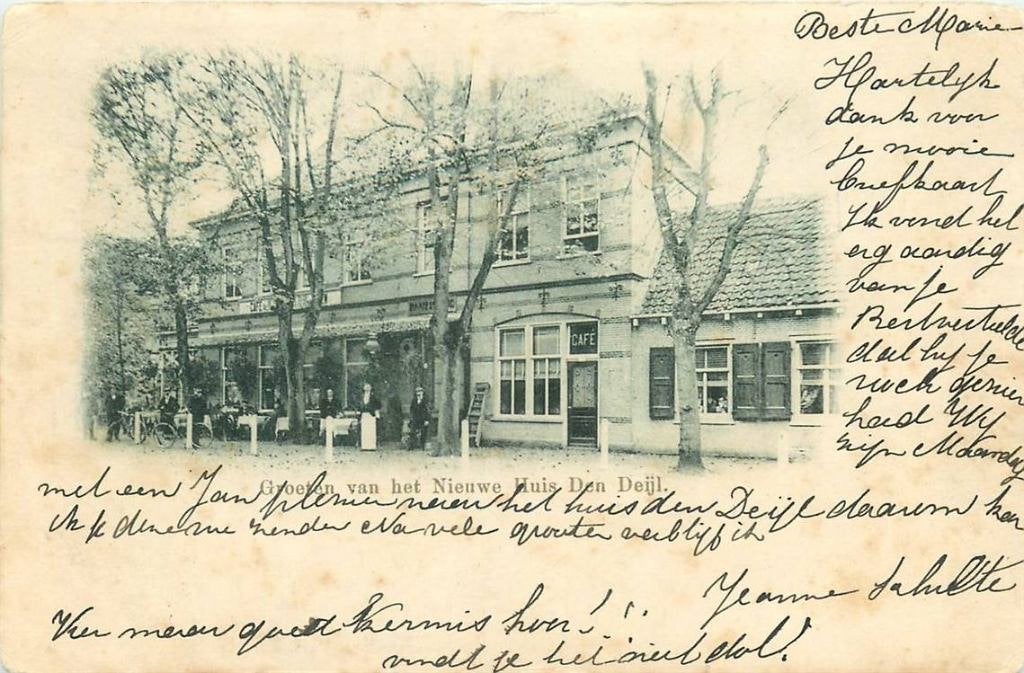 Beste Marie
Hartelijk
dank voor
je mooie
briefkaart
Ik vond het
erg aardig
van je
dat
je
noch
had Wij
zijn Maandag
CAFÉ
Groeten van het Nieuwe Huis Den Deijl.
met een Jan plezier naar het huis den Deijl daarom kan
ik je deze zenden Na vele groeten verblijf ik
Jeanne Schulte
Vier maar goed Kermis hoor!!!
vindt je het niet dol!